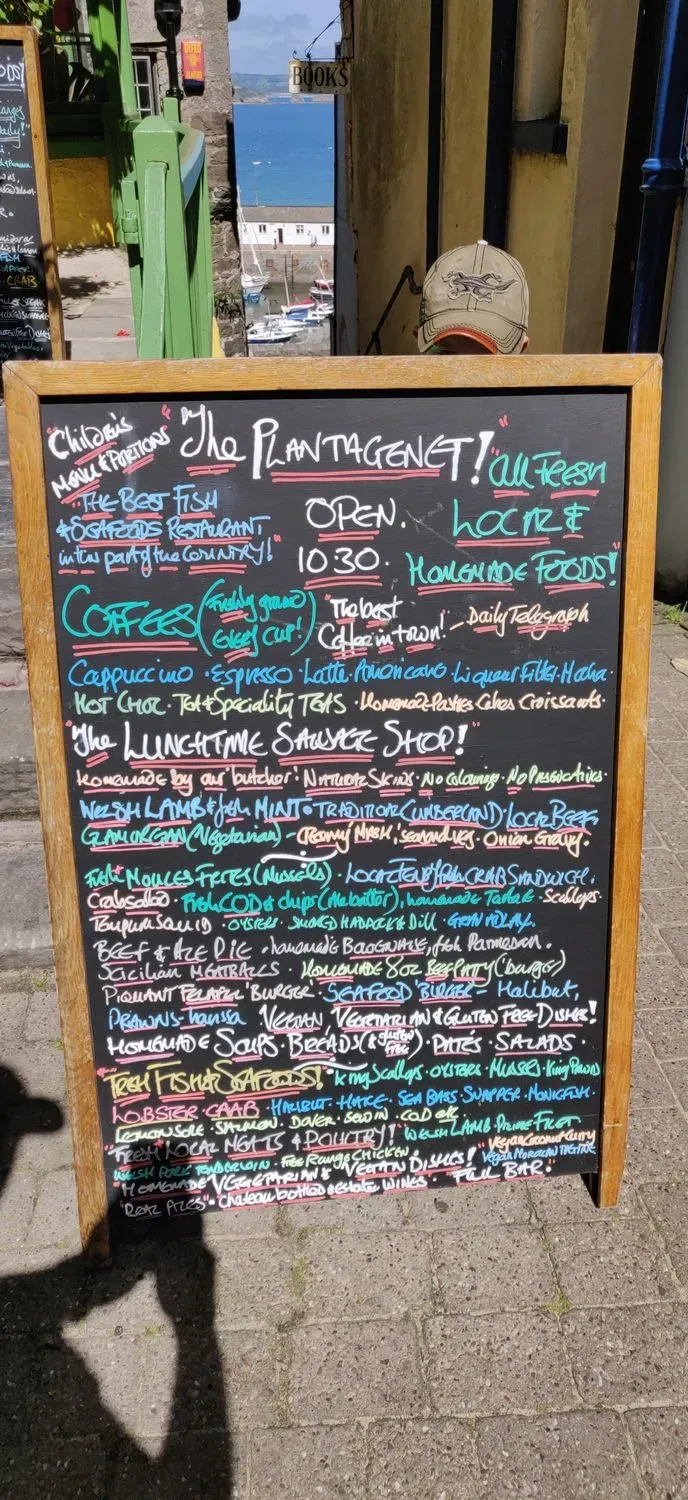 BOOKS
"Children's
Menu & Portions
"The PLANTAGENET!"
All Fresh
Local &
Homemade Foods!"
"The Best Fish
& Seafoods Restaurant
in this part of the Country!"
OPEN.
10.30.
COFFEES (Freshly ground
every cup!)
"The best
Coffee in town!" - Daily Telegraph
Cappuccino · Espresso · Latte · Americano · Liqueur · Filter · Mocha ·
Hot Choc · Tea & Speciality Teas · Homemade Pasties Cakes Croissants ·
"The LUNCHTIME SAUSAGE SHOP!"
homemade by our 'butcher' Natural Skins · No Colourings · No Preservatives ·
Welsh Lamb & fresh Mint · Traditional Cumberland · Local Beef ·
Glamorgan (Vegetarian) - Creamy Mash, Onion Gravy.
Fresh Moules Frites (Mussels) · Local Tenby Crab Sandwich.
Crab salad · Fresh COD & chips homemade Tartare · Scallops ·
Tempura Squid · Oysters · Smoked Haddock & Dill · Gravadlax.
Beef & Ale Pie · homemade Bolognaise, fresh Parmesan.
Sicilian Meatballs · Homemade 8oz Beef Patty ('burger')
Piquant Felafel 'Burger' · Seafood 'Burger' - Halibut,
Prawns - harissa Vegan Vegetarian & Gluten Free Dishes!
Homemade Soups · Breads (& gluten free) · Patés · Salads ·
"Fresh Fish & Seafoods! King Scallops · Oysters · Mussels · King Prawns
Lobster · Crab · Halibut · Hake · Sea Bass · Snapper · Monkfish ·
Lemon Sole · Salmon · Dover Sole · Cod etc.
"Fresh Local Meats & Poultry! Welsh Lamb · Prime Fillet
Welsh Pork Tenderloin · Free Range Chicken. "Vegan Coconut Curry
"Homemade Vegetarian & Vegan Dishes!" Vegan Moroccan Tagine
"Real Ales" · Chateau bottled & estate wines · Full Bar.